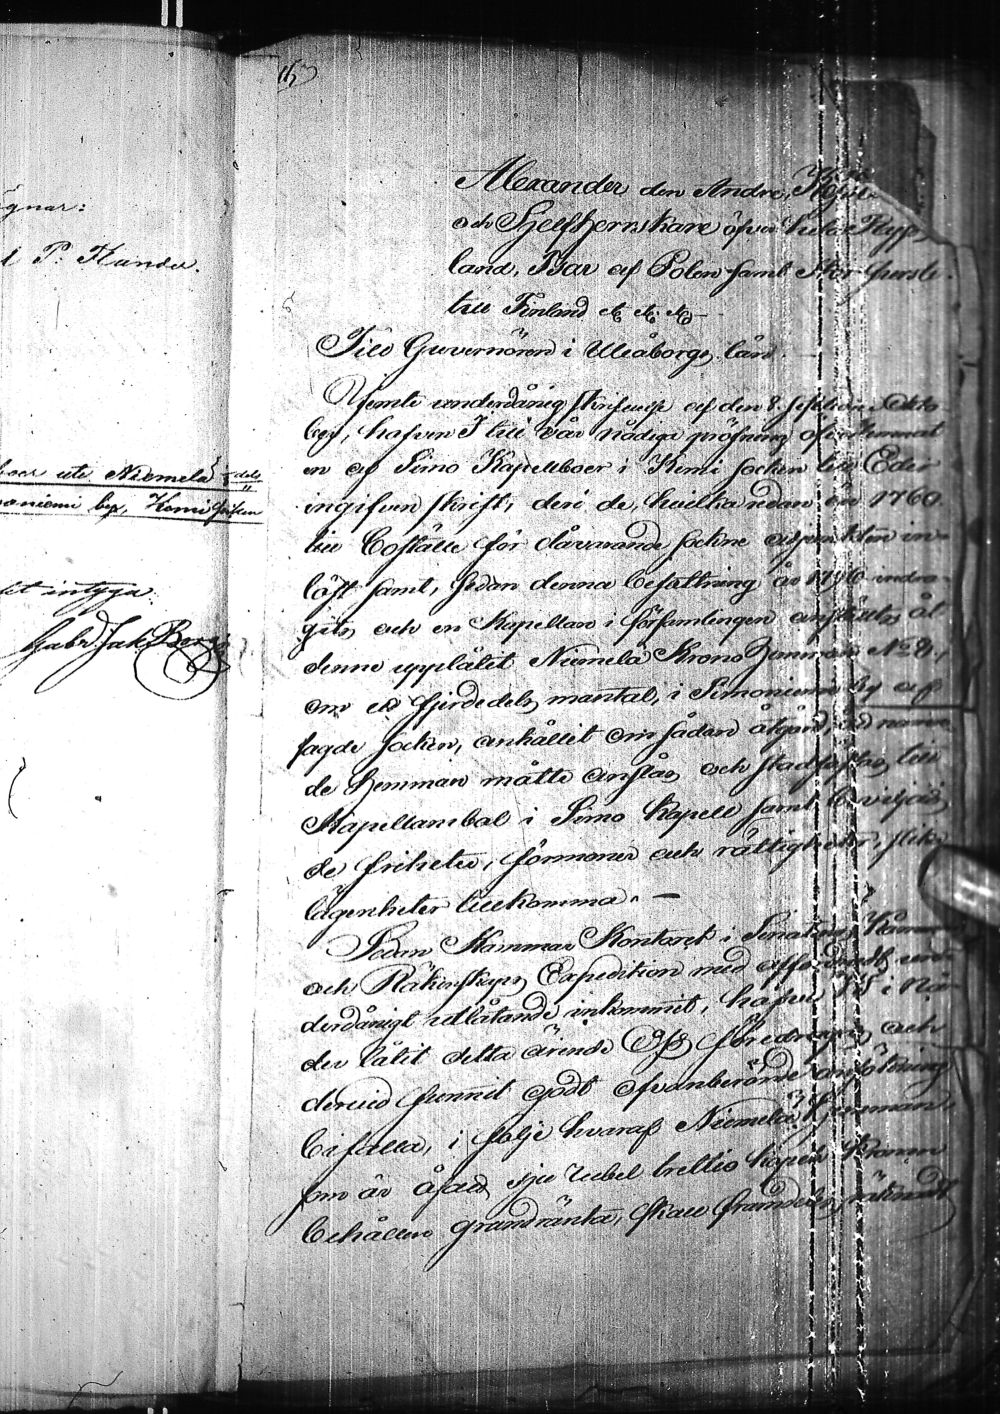 gnar:
P. Kander.
boer ute Niemelä ¼ dels
aniemi by, Kemi socken
et intyga:
Gabr Jak Berg
Alexander den Andre, Kejsare
och Sjelfherrskare öfver hela Ryss-
land, Tsar af Polen samt Stor furste
till Finland &c &c &c —
Till Guvernören i Uleåborgs län.
Jemte underdånig skrifvelse af den 8. sistl. Okto-
ber, hafven I till vår nådiga pröfning öfverlemnat
en af Simo Kapellboer i Kemi socken till Eder
ingifven skrift, deri de, hvilka redan år 1760
till Boställe för dåvarande sockne adjunkten in-
löst samt, sedan denna befattning år 1796 indra-
gits och en Kapellan i församlingen anställts åt
denne upplåtit Niemelä Krono Hemman No 8.,
om en fjerdedels mantal, i Simoniemi by af
sagde socken, anhållit om sådan åtgärd, att nämn-
de Hemman måtte anslås och stadfästas till
Kapellansbol i Simo Kapell samt beviljas
de friheter, förmoner och rättigheter, slika
lägenheter tillkomma. —
Sedan Kammar Kontoret i Senatens Kammar
och Räkenskaps Expedition med affordradt un-
derdånigt utlåtande inkommit, hafve VI i Nå-
der låtit detta ärende Oss föredragas och
dervid funnit godt ofvanberörde ansökning
bifalla, i följe hvaraf Niemelä Hemman,
som är åsatt sju rubel trettio kopek
behållen grundränta, skall framdeles, räknadt